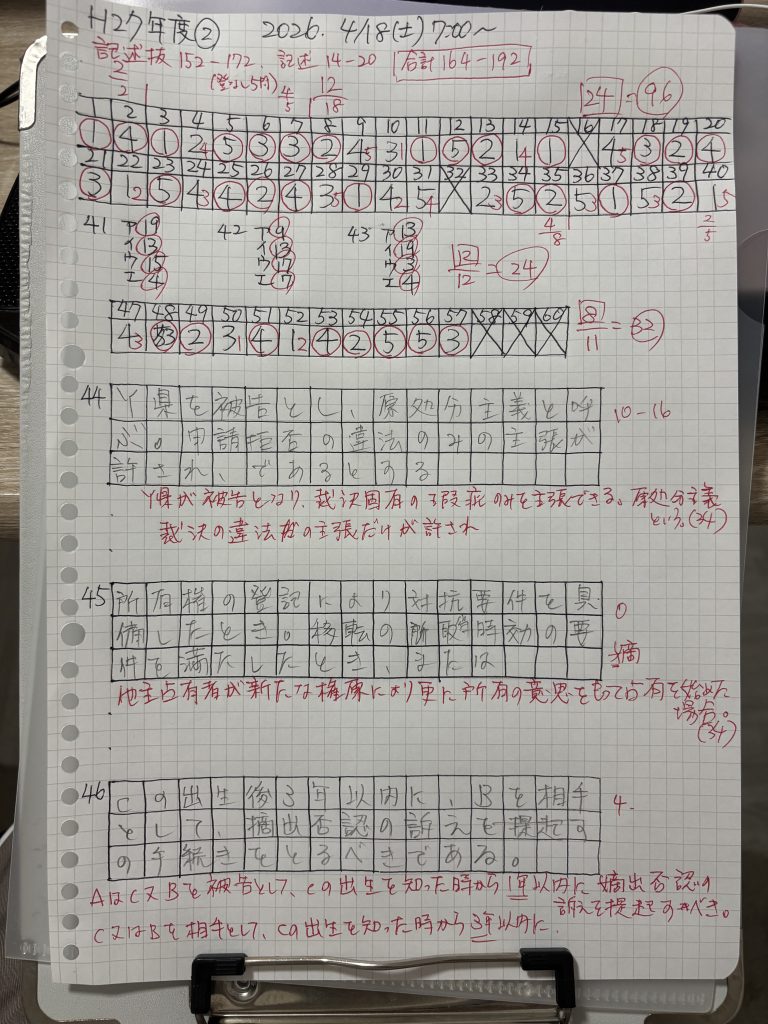 H27年度② 2026. 4/18(土) 7:00〜
記述抜 152-172. 記述 14-20 合計164-192
2/2 (登小し5内) 4/5 12/18 24=96
1 2 3 4 5 6 7 8 9 10 11 12 13 14 15 16 17 18 19 20
① ④ ① 24 ⑤ ③ ③ ② 45 31 ① ⑤ ② 14 ① 45 ③ ② ④
21 22 23 24 25 26 27 28 29 30 31 32 33 34 35 36 37 38 39 40
③ 12 ⑤ 43 ④ ② ④ 35 ① 42 54 23 ⑤ ② 53 ① 53 ② 15
4/8 2/5
41 ア⑲ 42 ア⑨ 43 ア⑬
イ⑬ イ⑬ イ⑲
ウ⑮ ウ⑰ ウ③
エ④ エ⑦ エ④
12/12=24
47 48 49 50 51 52 53 54 55 56 57 58 59 60
43 ③ ② 31 ④ 12 ④ ② ⑤ ⑤ ③
8/11=32
44 Y県を被告とし、原処分主義と呼
ぶ。申請拒否の違法のみの主張が
許され、であるとする
10-16
Y県が被告となり、裁決固有の瑕疵のみを主張できる。原処分主義
という。(34)
裁決の違法の主張だけが許され
45 所有権の登記により対抗要件を具
備したとき。移転の所取得時効の要
件を満たしたとき、または
0
嫡
他主占有者が新たな権原により更に所有の意思をもって占有を始めた
場合。
(34)
46 Cの出生後3年以内に、Bを相手
として、摘出否認の訴えを提起す
の手続きをとるべきである。
4.
AはC又Bを被告として、Cの出生を知った時から1年以内に嫡出否認の
訴えを提起すべき。
C又はBを相手として、Cの出生を知った時から3年以内に.